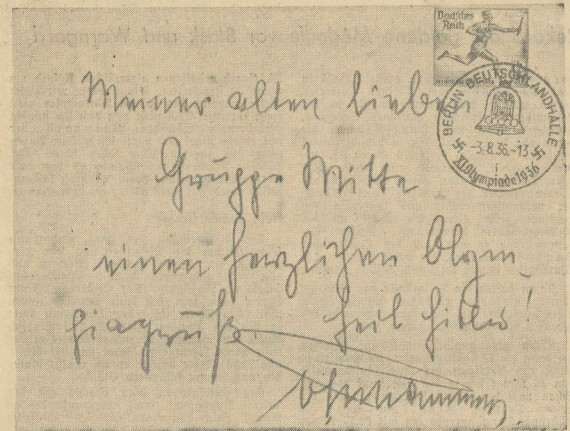 Deutsches
Reich
BERLIN DEUTSCHLANDHALLE
-3.8.36.-13
XI. Olympiade 1936
Meiner alten lieben
Gruppe Mitte
einen herzlichen Olym-
piagruß. Heil Hitler!